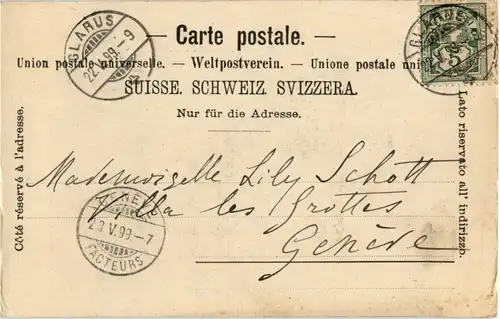 GLARUS
22.V.99.-9
— Carte postale. —
Union postale universelle. — Weltpostverein. — Unione postale uni
SUISSE. SCHWEIZ. SVIZZERA.
Nur für die Adresse.
Côté réservé à l'adresse.
Lato riservato all' indirizzo.
Mademoiselle Lily Schott
Villa les Grottes
Genève
23.V.99.-7
FACTEURS